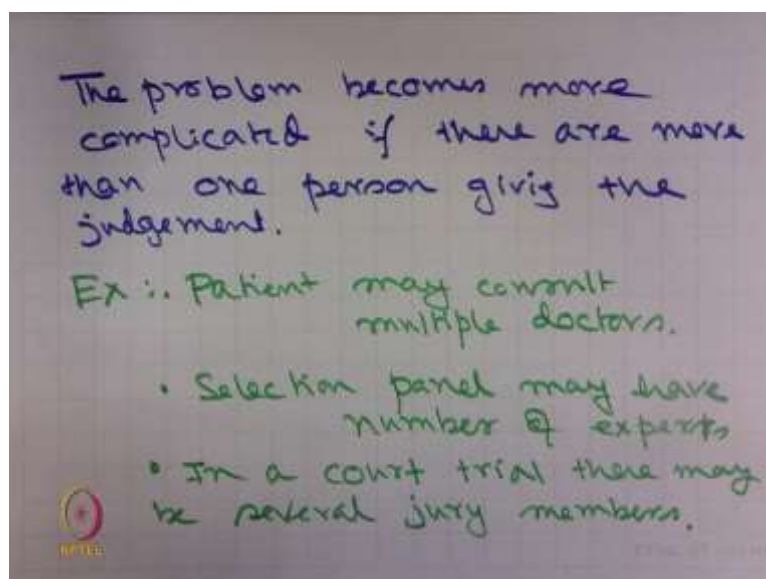 The problem becomes more
complicated if there are more
than one person givig the
judgement.
Ex :. Patient may consult
multiple doctors.
• Selection panel may have
number of experts
• In a court trial there may
be several jury members.
NPTEL